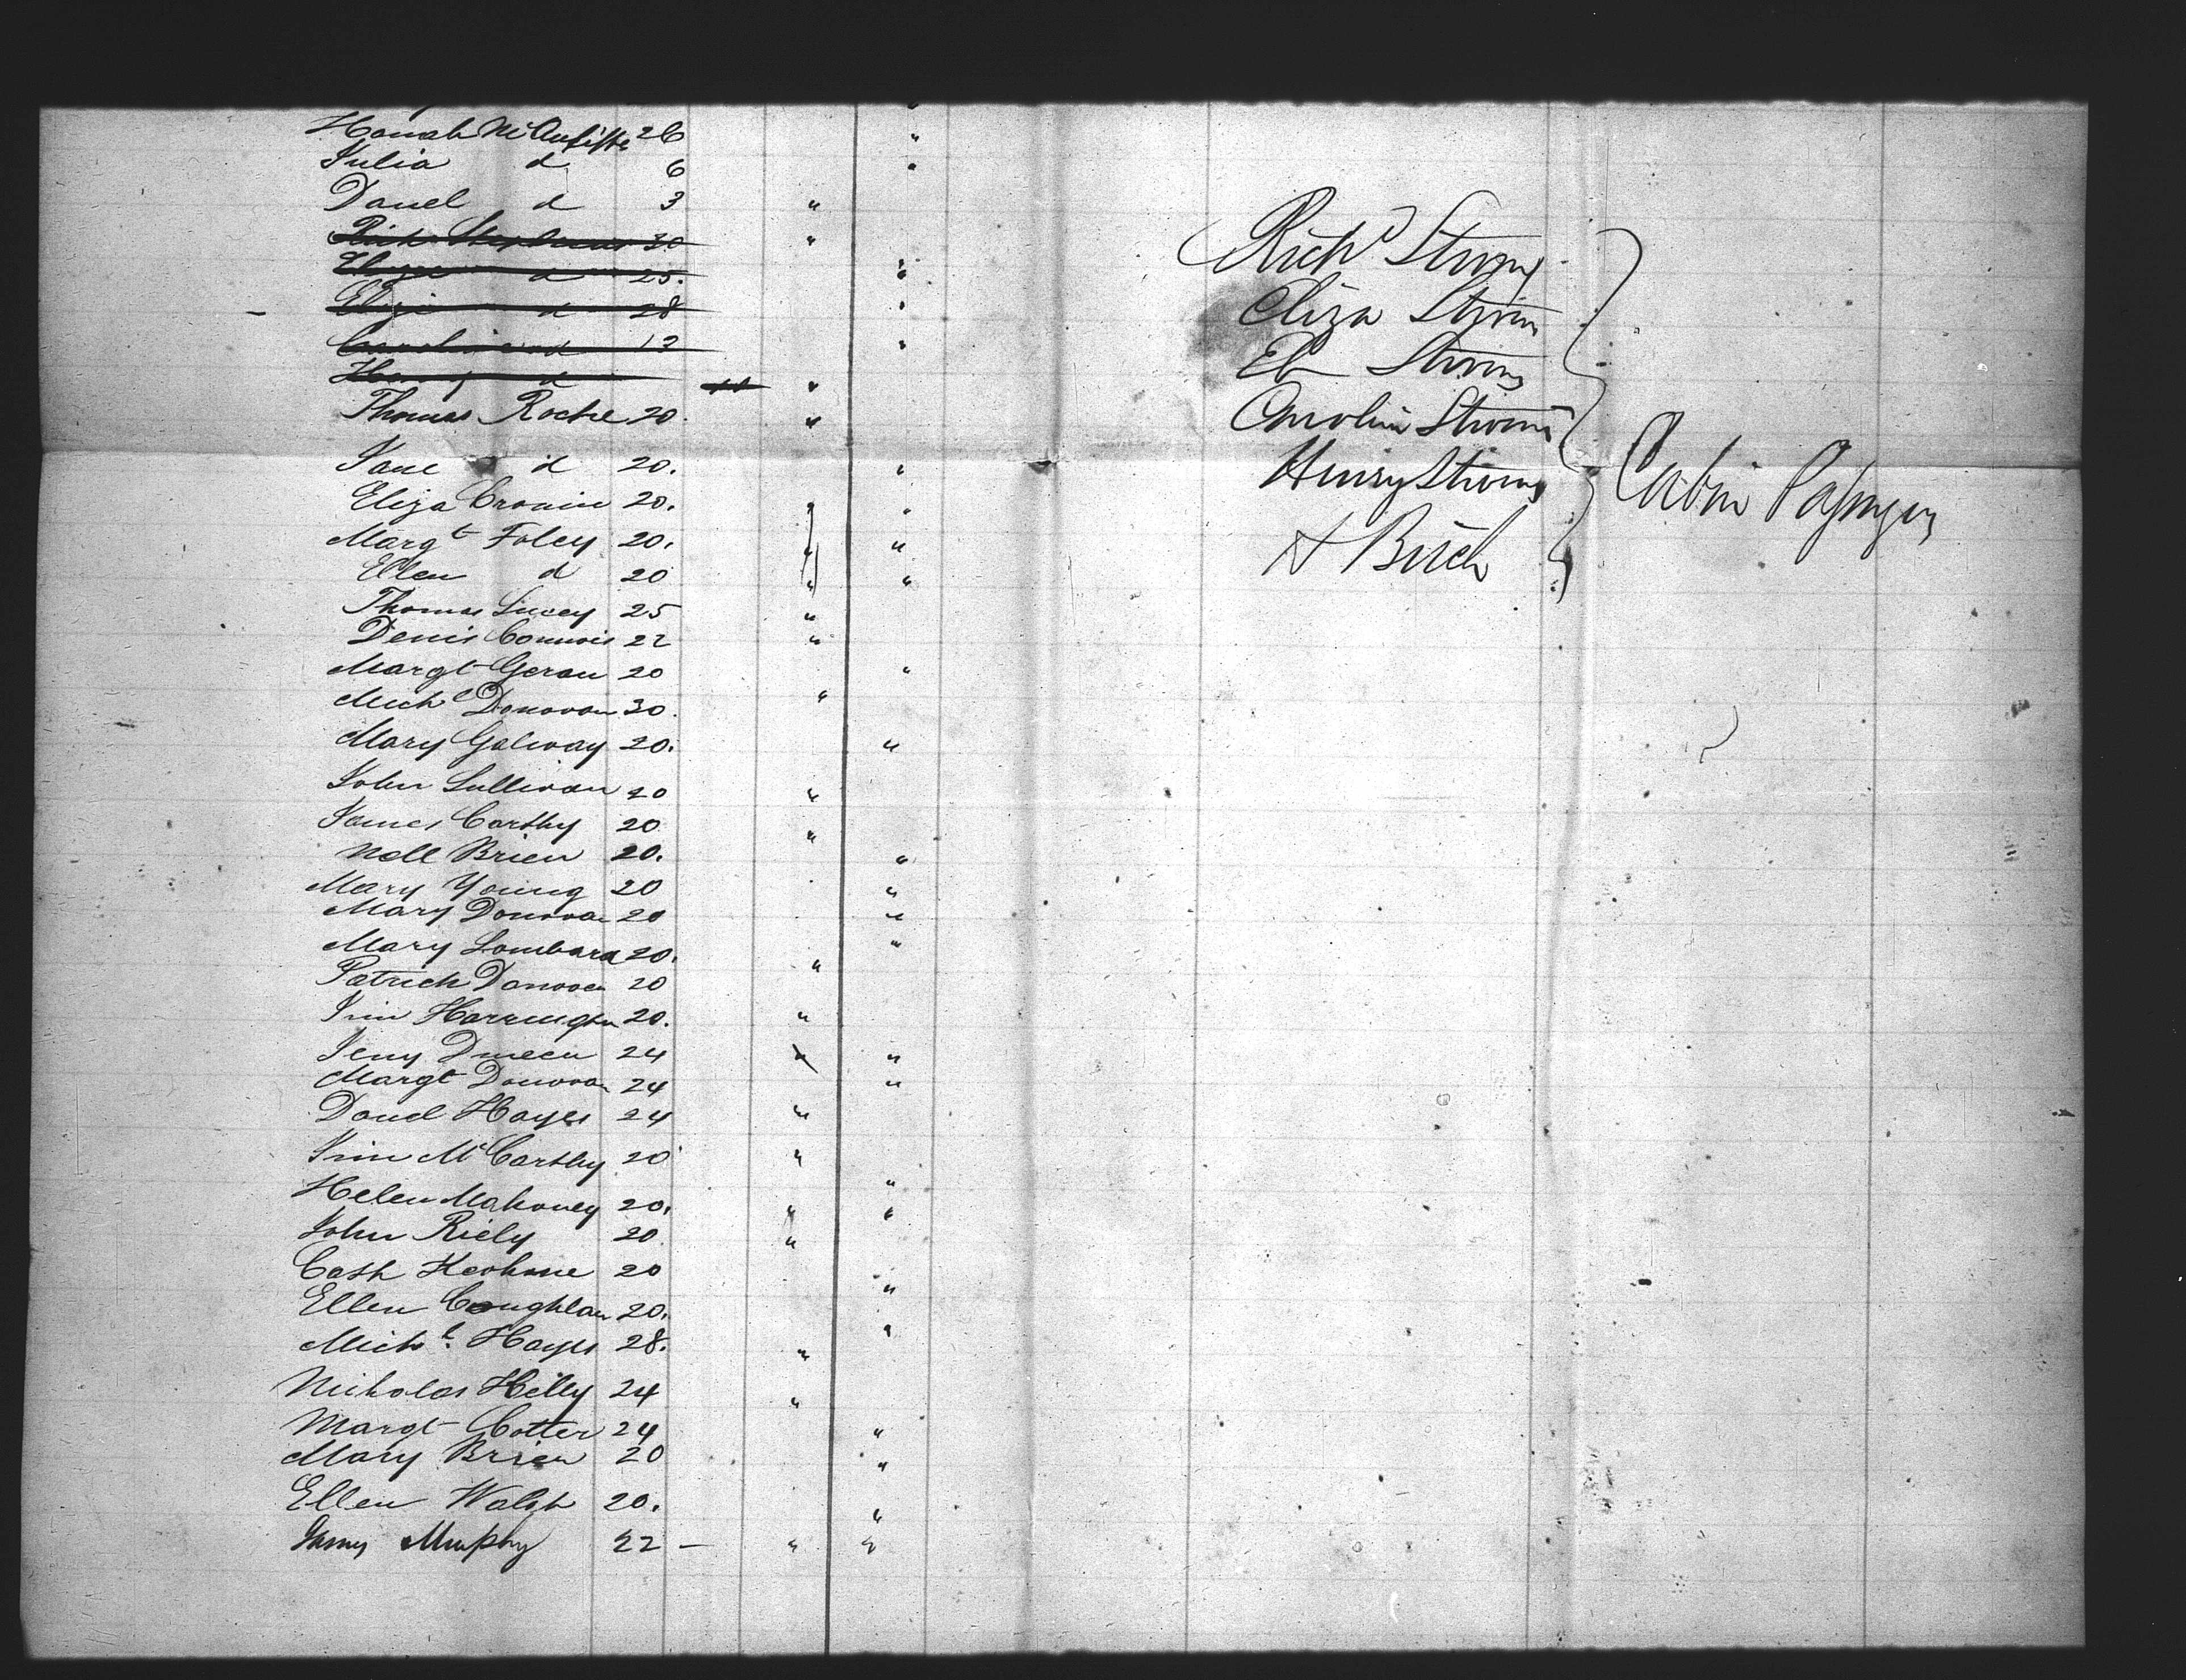 Hannah McAuliffe 26 "
Julia d 6 "
Daniel d 3 "
Rich Stephens 30 "
d 25. "
Eliza d 28 "
Caroline d 13 "
Henry d "
Thomas Roche 20. "
Jane d 20. "
Eliza Cronin 20. "
Margt Foley 20. "
Ellen d 20 "
Thomas Lucey 25 "
Denis Connors 22 "
Margt Geran 20 "
Michl Donovan 30. "
Mary Galway 20. "
John Sullivan 20 "
James Carthy 20 "
Nell Brien 20. "
Mary Young 20 "
Mary Donovan 20 "
Mary Lombard 20. "
Patrick Donovan 20 "
Jim Harrington 20. "
Jeny Dineen 24 "
Margt Donovan 24 "
Daniel Hayes 24 "
Jim McCarthy 20 "
Helen Mahoney 20. "
John Riely 20 "
Cath Keohane 20 "
Ellen Coughlan 20. "
Michl. Hayes 28. "
Nicholas Hilly 24 "
Margt Cotter 24 "
Mary Brien 20 "
Ellen Walsh 20. "
Murphy 22 - " "
Richd Strong
Eliza Strong
Strong
Caroline Strong
Henry Strong
Cabin Passengers